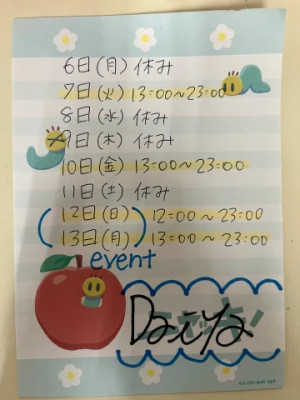 6日(月) 休み
7日(火) 13:00〜23:00
8日(水) 休み
9日(木) 休み
10日(金) 13:00〜23:00
11日(土) 休み
(12日(日)) 12:00〜23:00
(13日(月)) 13:00〜23:00
event
Daiya